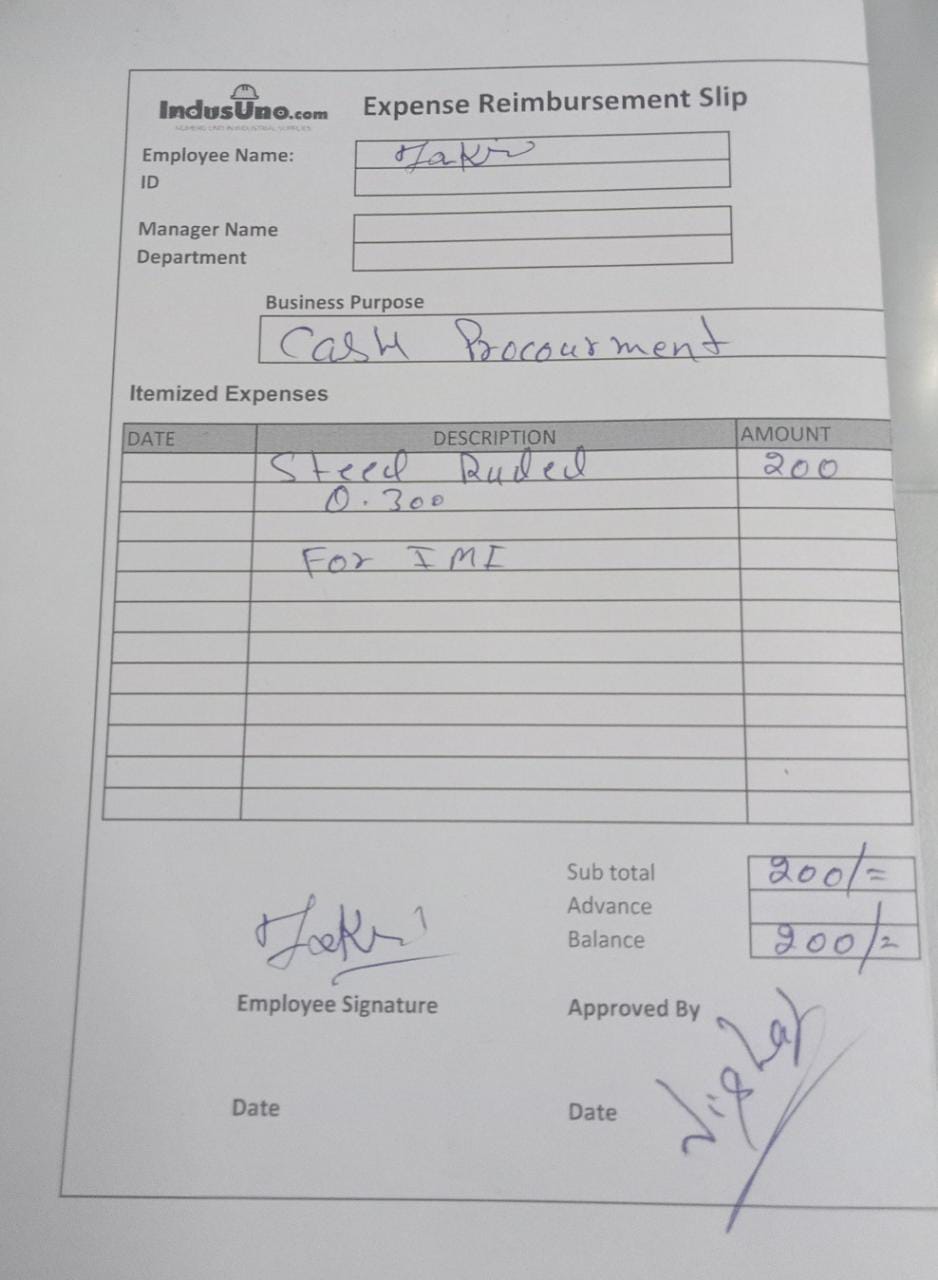 IndusUno.com
NUMERO UNO IN INDUSTRIAL SUPPLIES
Expense Reimbursement Slip
Employee Name: Jakir
ID
Manager Name
Department
Business Purpose
Cash Procourment
Itemized Expenses
DATE DESCRIPTION AMOUNT
Steed Ruded 200
0.300
For IMI
Sub total 200/=
Advance
Balance 200/=
Employee Signature
Approved By
Date
Date